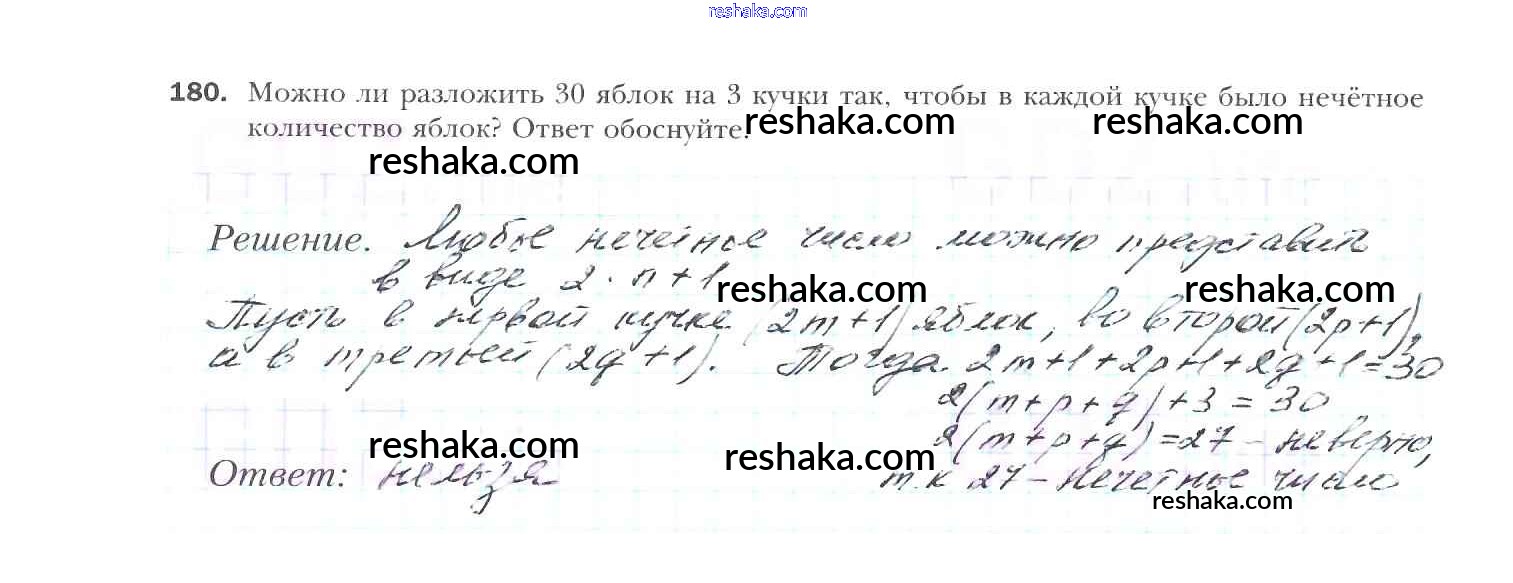 reshaka.com
180. Можно ли разложить 30 яблок на 3 кучки так, чтобы в каждой кучке было нечётное
количество яблок? Ответ обоснуйте.
reshaka.com reshaka.com
reshaka.com
Решение. Любое нечетное число можно представить
в виде 2 · n + 1
reshaka.com reshaka.com
Пусть в первой кучке (2m+1) яблок, во второй (2p+1),
а в третьей (2q+1). Тогда 2m+1+2p+1+2q+1=30
2(m+p+q)+3=30
reshaka.com reshaka.com
2(m+p+q)=27 - неверно,
Ответ: нельзя т.к 27 - нечетные число
reshaka.com